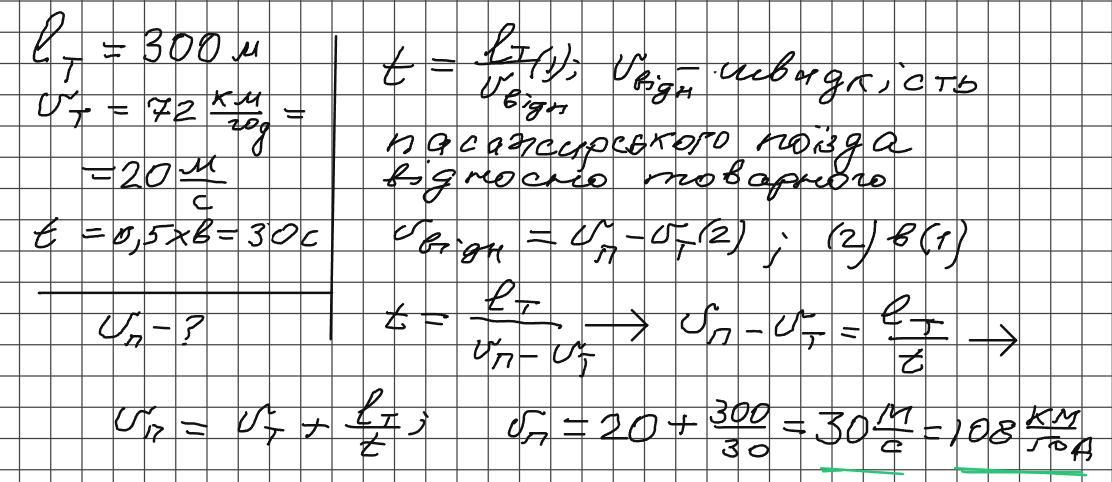 l_T = 300 м
υ_T = 72 км/год =
= 20 м/с
t = 0,5 хв = 30 с
υ_п - ?
t = l_T/υ_відн (1); υ_відн - швидкість
пасажирського поїзда
відносно товарного
υ_відн = υ_п - υ_T (2) ; (2) в (1)
t = l_T/(υ_п - υ_T) → υ_п - υ_T = l_T/t →
υ_п = υ_T + l_T/t ; υ_п = 20 + 300/30 = 30 м/с = 108 км/год